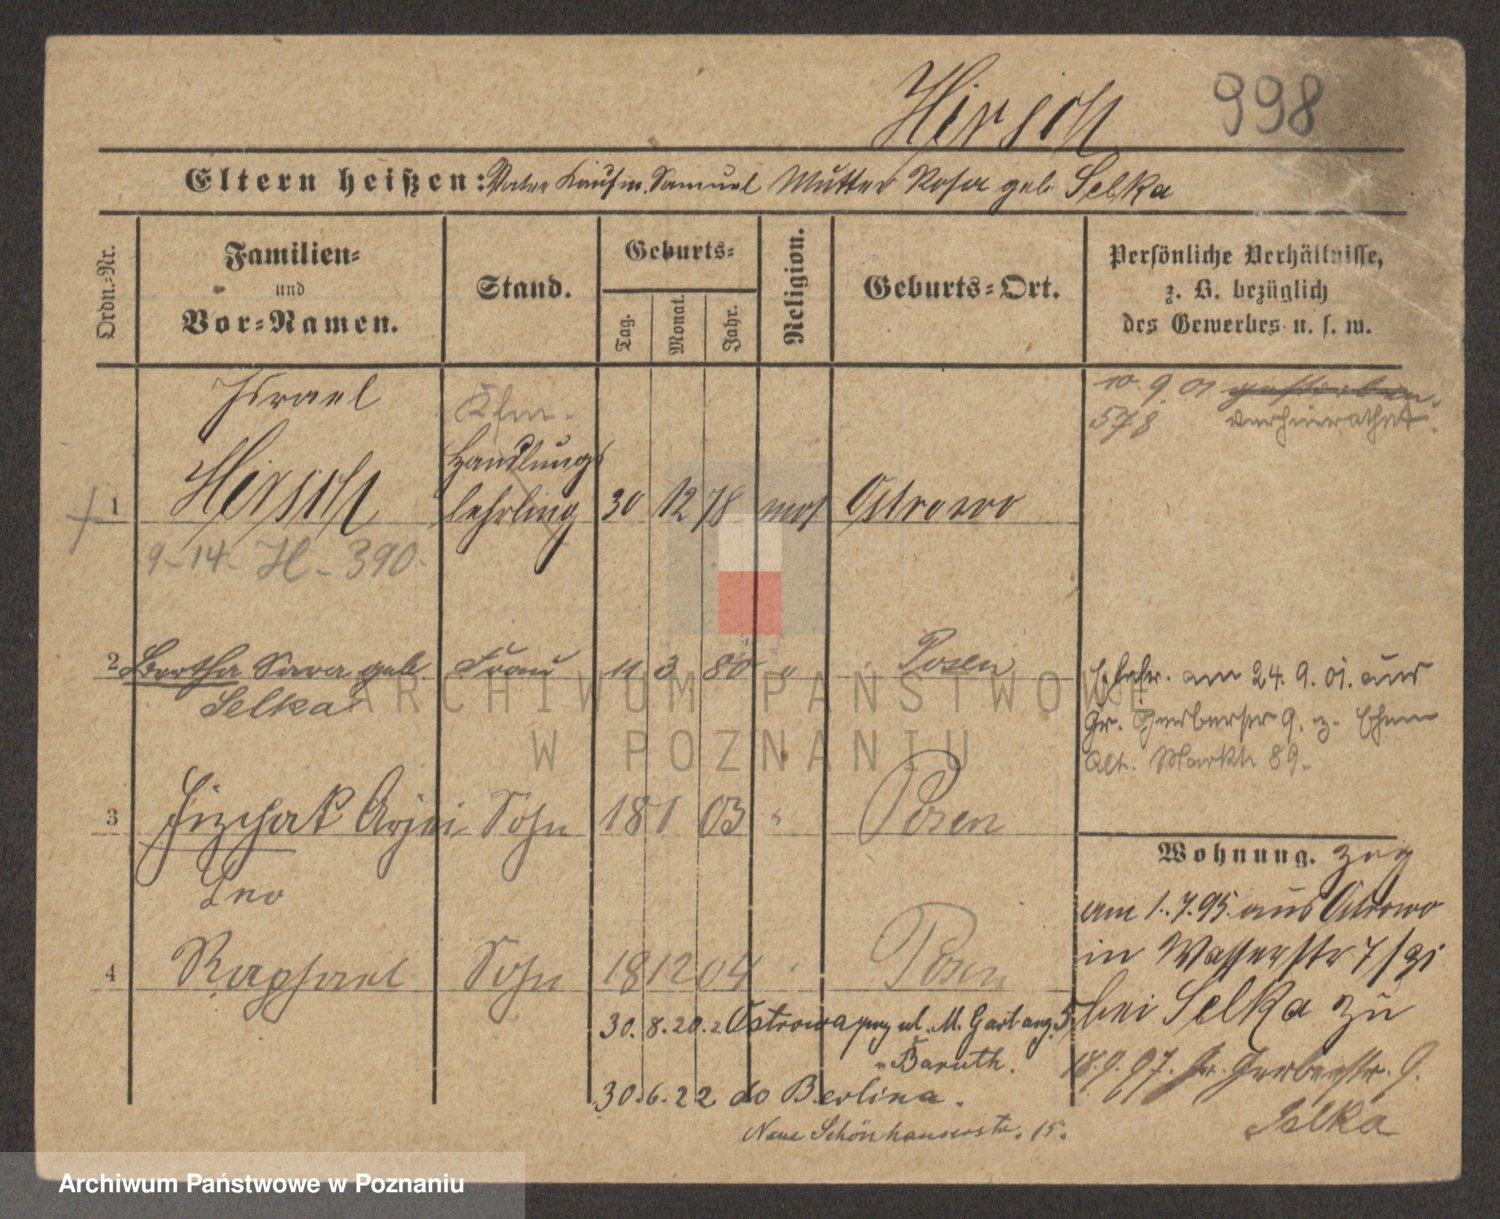 Hirsch 998
Eltern heißen: Vater Kaufm. Samuel Mutter Rosa geb Selka
Ordn.-Nr.
Familien- und Vor-Namen.
Stand.
Geburts-
Tag. Monat. Jahr.
Religion.
Geburts-Ort.
Persönliche Verhältnisse,
z. B. bezüglich
des Gewerbes u. s. w.
Israel Kfm.
Hirsch Handlungs
1 lehrling 30 12 78 mos Ostrowo
9-14. H - 390.
10. 9. 01 gestorben.
578 verheirathet.
2 Bertha Sara geb. Frau 11 3 80 " Posen
Selka
Ehefr. am 24. 9. 01. aus
Gr. Gerberstr 9. z. Ehem
Alt. Markt 89.
3 Jizchak Sohn 18 1 03 " Posen
Leo
4 Raphael Sohn 18 12 04 " Posen
Wohnung. zog
am 1. 7. 95. aus Ostrowo
in Wasserstr 7/
bei Selka zu
18. 9. 97. Gr. Gerberstr. 9.
Selka
30. 8. 20. z Ostrowa przy ul. M. Garbary 5,
Baruth.
30. 6. 22 do Berlina.
Neue Schönhauserstr. 15.
ARCHIWUM PAŃSTWOWE
W POZNANIU
Archiwum Państwowe w Poznaniu